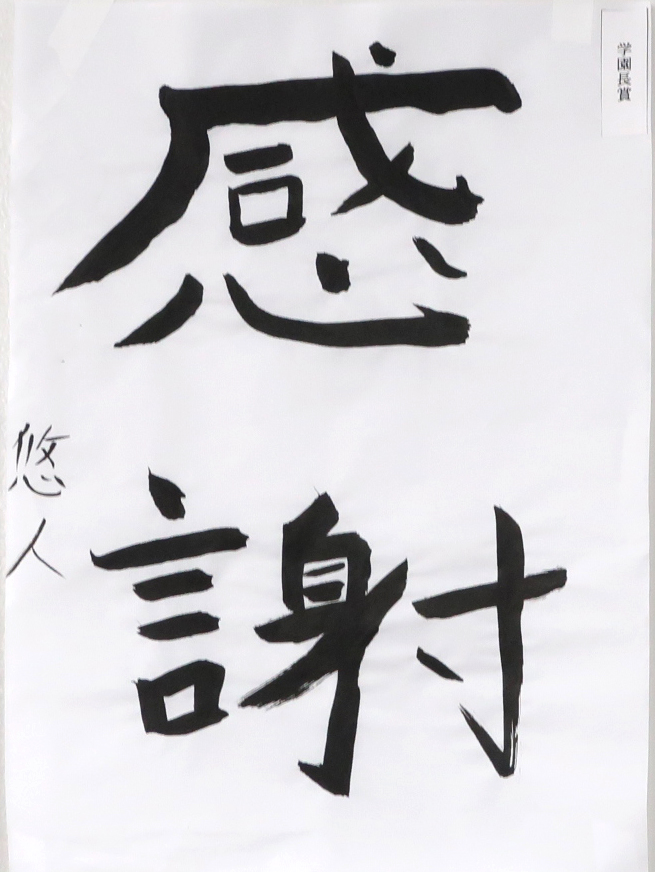 学園長賞
感謝
悠人